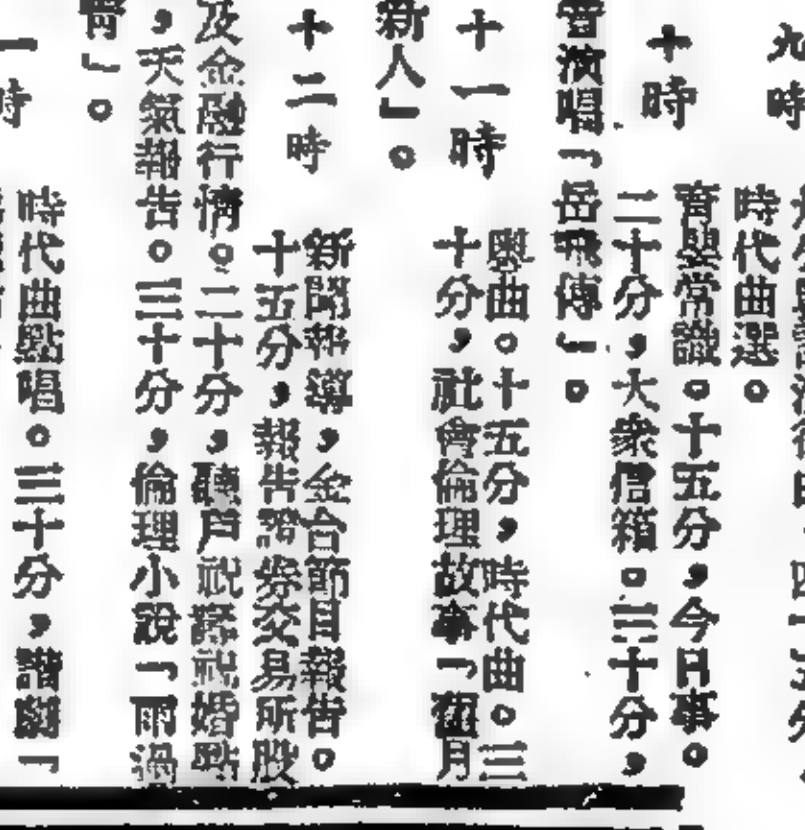 九時
時代曲選。
十時
育嬰常識。十五分，今日事。
二十分，大衆信箱。三十分，
演唱「岳飛傳」。
十一時
粵曲。十五分，時代曲。三
十分，社會倫理故事「蜜月
新人」。
十二時
新聞報導，金台節目報告。
十五分，報告證券交易所股
及金融行情。二十分，聽戶祝壽祝婚點
，天氣報告。三十分，倫理小說「雨過
」。
一時
時代曲點唱。三十分，諧劇「